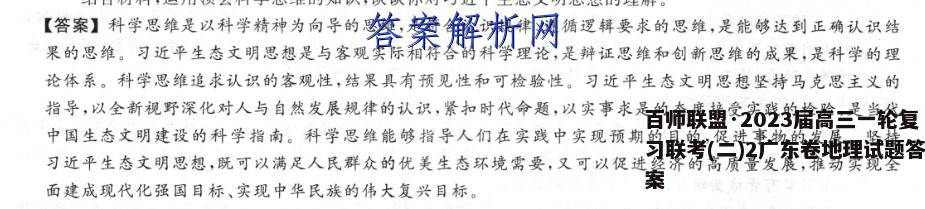 【答案】科学思维是以科学精神为向导的思维,
循逻辑要求的思维,是能够达到正确认识结
果的思维。习近平生态文明思想是与客观实际相符合的科学理论,是辩证思维和创新思维的成果,是科学的理
论体系。科学思维追求认识的客观性,结果具有预见性和可检验性。习近平生态文明思想坚持马克思主义的
指导,以全新视野深化对人与自然发展规律的认识,紧扣时代命题,以实事求是的态度接受实践的检验,是当代
中国生态文明建设的科学指南。科学思维能够指导人们在实践中实现预期的目的,促进事物的发展。坚持
习近平生态文明思想,既可以满足人民群众的优美生态环境需要,又可以促进经济的高质量发展,推动实现全
面建成现代化强国目标、实现中华民族的伟大复兴目标。
答案解析网
百师联盟·2023届高三一轮复
习联考(二)2广东卷地理试题答
案